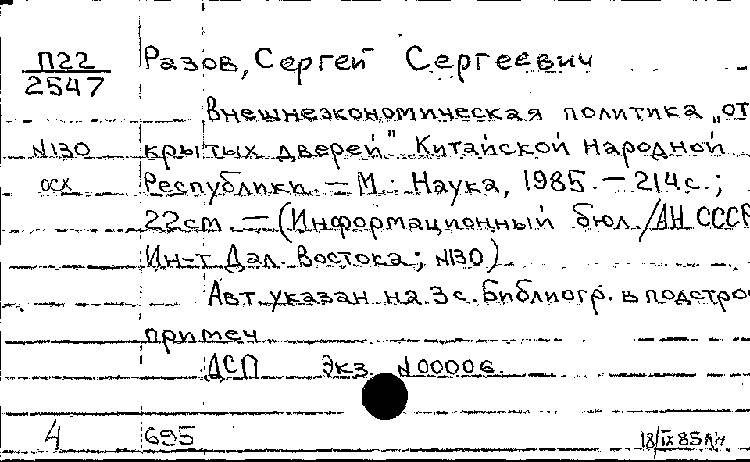 П22 Разов, Сергей Сергеевич
2547
Внешнеэкономическая политика „от
N130 крытых дверей" Китайской Народной
осх Республики. — М.: Наука, 1985. — 214с.;
22cm. — (Информационный бюл. / АН СССР
Ин-т Дал. Востока; N130)
Авт. указан на 3 с. Библиогр. в подстро
примеч
ДСП Экз. N00006.
4 695 18/IX 85